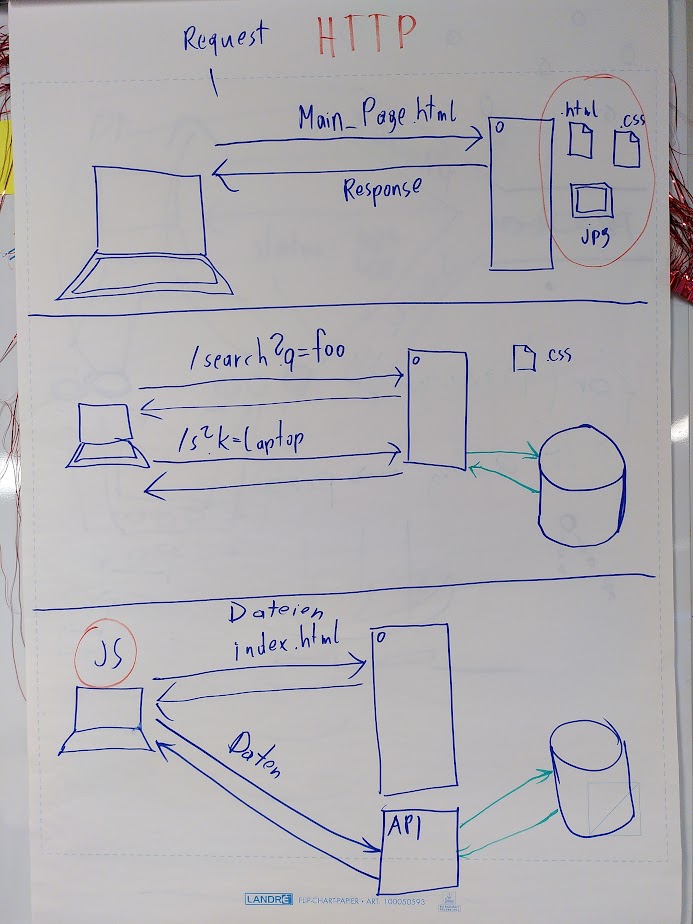 Request HTTP
Main_Page.html
Response
.html
.css
jpg
/search?q=foo
.css
/s?k=laptop
Dateien
index.html
JS
Daten
API
LANDRÉ FLIP-CHART-PAPIER • ART. 100050593